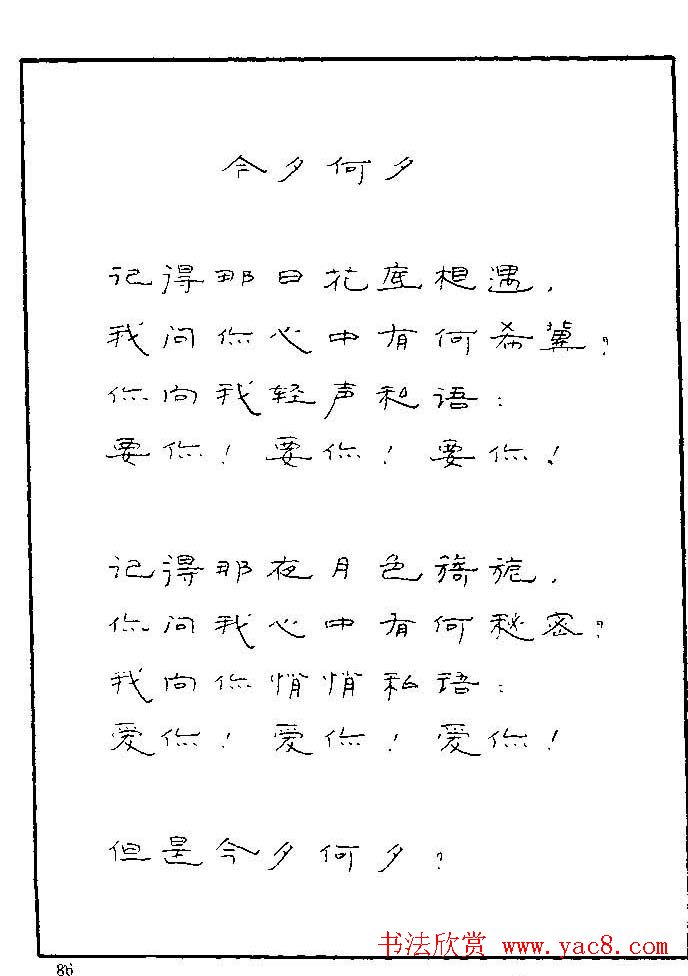 今夕何夕
记得那日花底相遇，
我问你心中有何希冀？
你向我轻声私语：
要你！要你！要你！
记得那夜月色旖旎，
你问我心中有何秘密？
我向你悄悄私语：
爱你！爱你！爱你！
但是今夕何夕？
书法欣赏 www.yac8.com
86